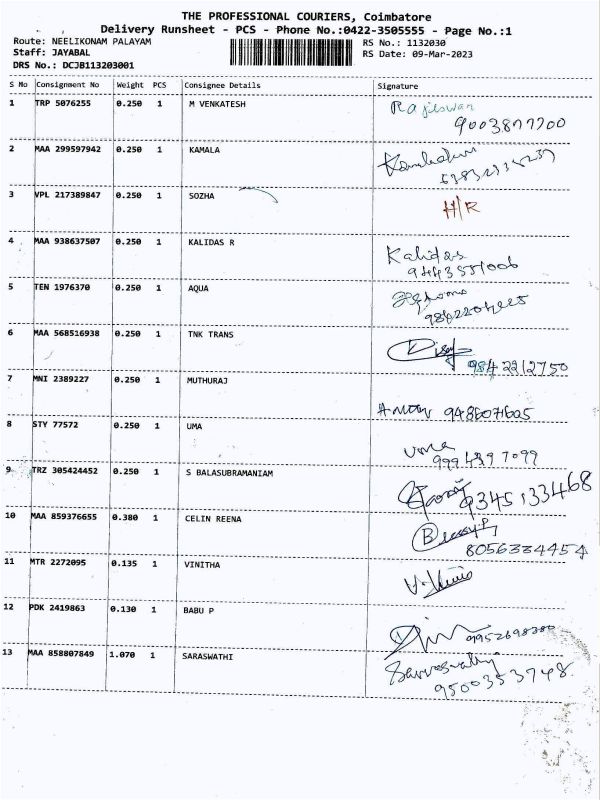 THE PROFESSIONAL COURIERS, Coimbatore
Delivery Runsheet - PCS - Phone No.:0422-3505555 - Page No.:1
Route: NEELIKONAM PALAYAM
RS No.: 1132030
Staff: JAYABAL
RS Date: 09-Mar-2023
DRS No.: DCJB113203001
S No Consignment No Weight PCS Consignee Details Signature
1 TRP 5076255 0.250 1 M VENKATESH Rajeswari
9003877700
2 MAA 299597942 0.250 1 KAMALA
3 VPL 217389847 0.250 1 SOZHA H/R
4 MAA 938637507 0.250 1 KALIDAS R Kalidas
9443551006
5 TEN 1976370 0.250 1 AQUA
6 MAA 568516938 0.250 1 TNK TRANS
9842212750
7 MNI 2389227 0.250 1 MUTHURAJ
9486071605
8 STY 77572 0.250 1 UMA uma
9994897099
9 TRZ 305424452 0.250 1 S BALASUBRAMANIAM
9345133468
10 MAA 859376655 0.380 1 CELIN REENA
8056334454
11 MTR 2272095 0.135 1 VINITHA
12 PDK 2419863 0.130 1 BABU P
9952698380
13 MAA 858807849 1.070 1 SARASWATHI Sarasvathy
9500353748